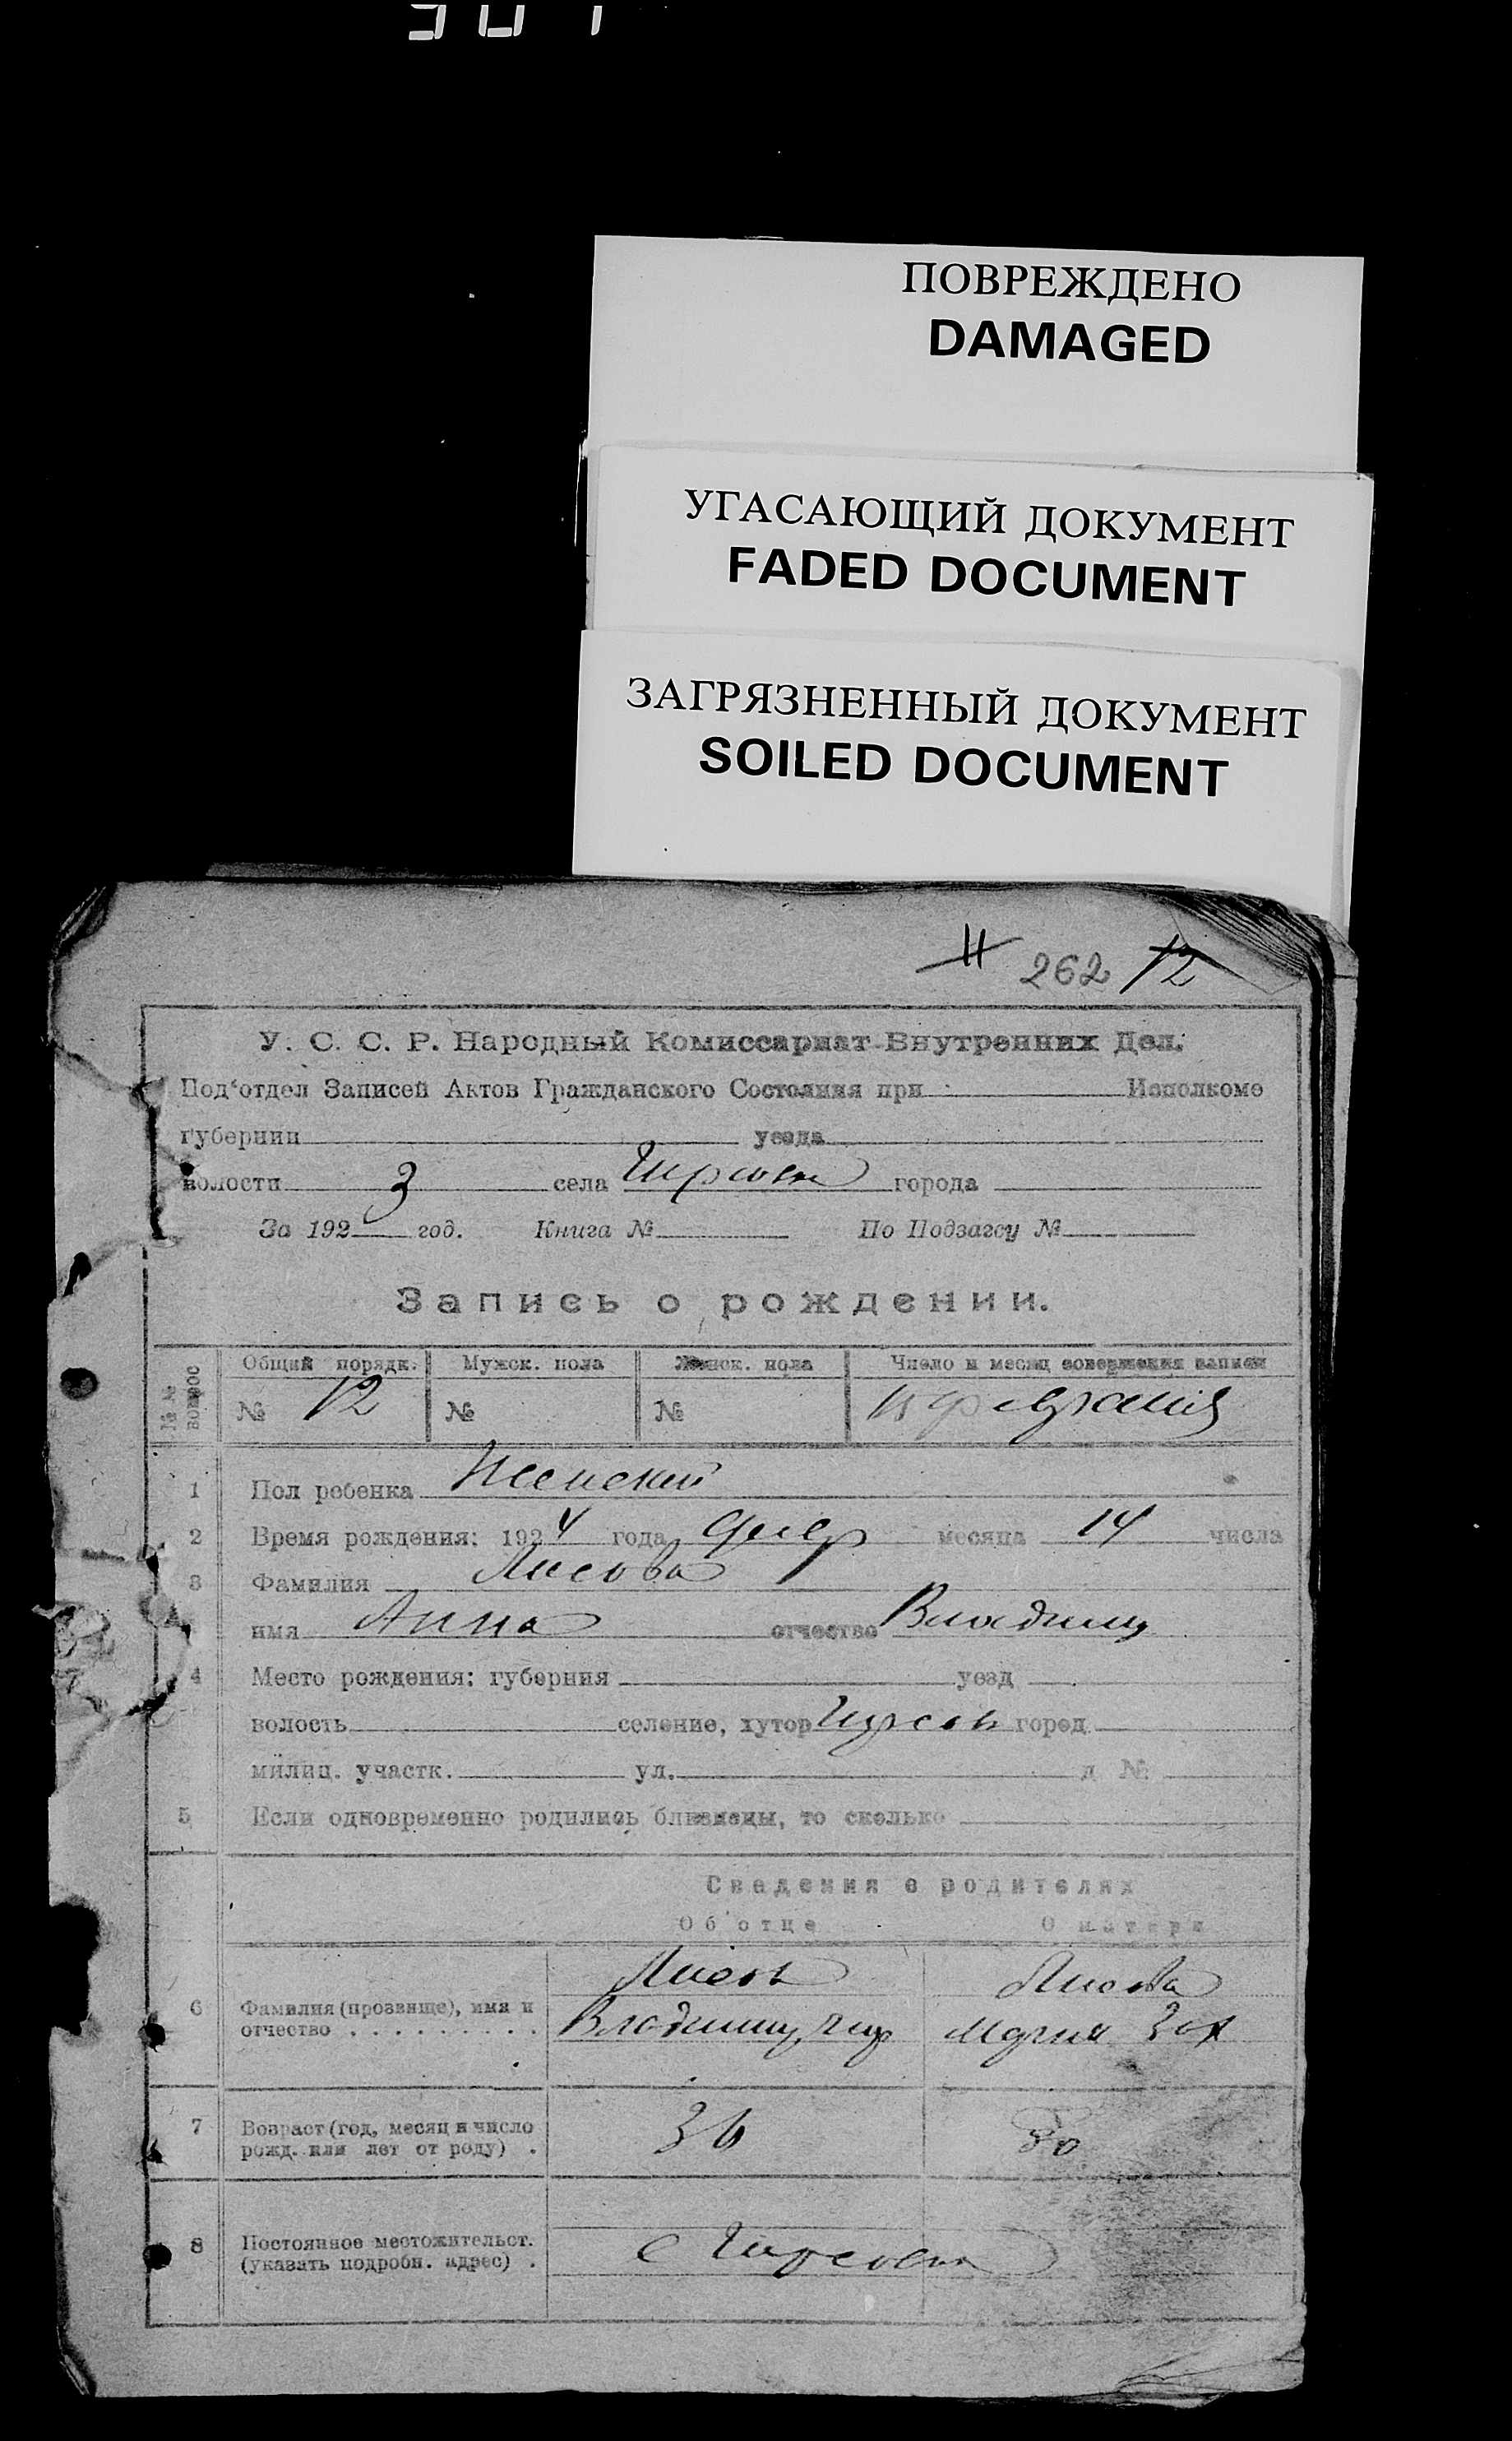 ПОВРЕЖДЕНО
DAMAGED
УГАСАЮЩИЙ ДОКУМЕНТ
FADED DOCUMENT
ЗАГРЯЗНЕННЫЙ ДОКУМЕНТ
SOILED DOCUMENT
11 262 12
У. С. С. Р. Народный Комиссариат Внутренних Дел.
Под'отдел Записей Актов Гражданского Состояния при Исполкоме
губернии уезда
волости 3 села города
За 192 год. Книга № По Подзагсу №
Запись о рождении.
№№ вопрос
Общий порядк. Мужск. пола Женск. пола Число и месяц совершения записи
№ 12 № №
1 Пол ребенка Женский
2 Время рождения: 1924 года февр месяца 14 числа
3 Фамилия Лисова
имя Анна отчество Владим
4 Место рождения: губерния уезд
волость селение, хутор город
милиц. участк. ул. д №
5 Если одновременно родились близнецы, то сколько
Сведения о родителях
Об отце О матери
Лисов Лисова
6 Фамилия (прозвище), имя и отчество Владимир Мария Зах
7 Возраст (год, месяц и число рожд. или лет от роду) 36
8 Постоянное местожительст. (указать подробн. адрес) с